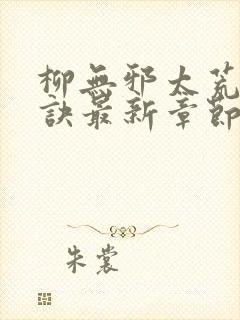 柳無邪太荒
訣最新章節
朱裳